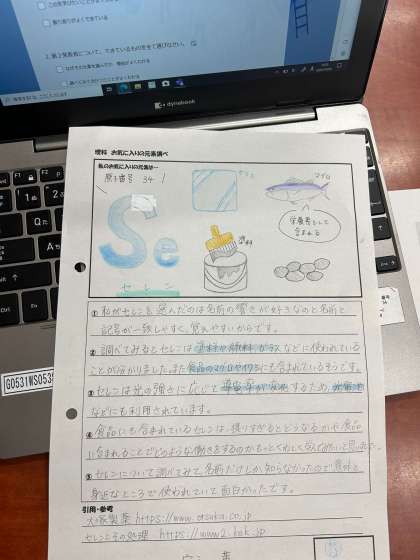 2. 第2発表者について、できているものを全て選びなさい。
dynabook
理科 お気に入りの元素調べ
私のお気に入りの元素は…
原子番号 34
Se
セレン
ガラス
塗料
マグロ
栄養素として
含まれる
① 私がセレンを選んだのは名前の響きが好きなのと名前と
記号が一致しやすく、覚えやすいからです。
② 調べてみるとセレンは塗料や顔料、ガラスなどに使われている
ことが分かりました。また食品のマグロやイワシにも含まれているそうです。
③ セレンは光の強さに応じて導電率が変化するため、
などにも利用されています。
④ 食品にも含まれているセレンは、摂りすぎるとどうなるかや食品
に含まれることでどのような働きをするのかもっとくわしく調べてみたいと思った。
⑤ セレンについて調べてみて、名前だけしか知らなかったので意外と
身近なところで使われていて面白かったです。
引用・参考
大塚製薬 https://www.otsuka.co.jp
セレンとその処理 https://www2.hok.jp
G0531WS053